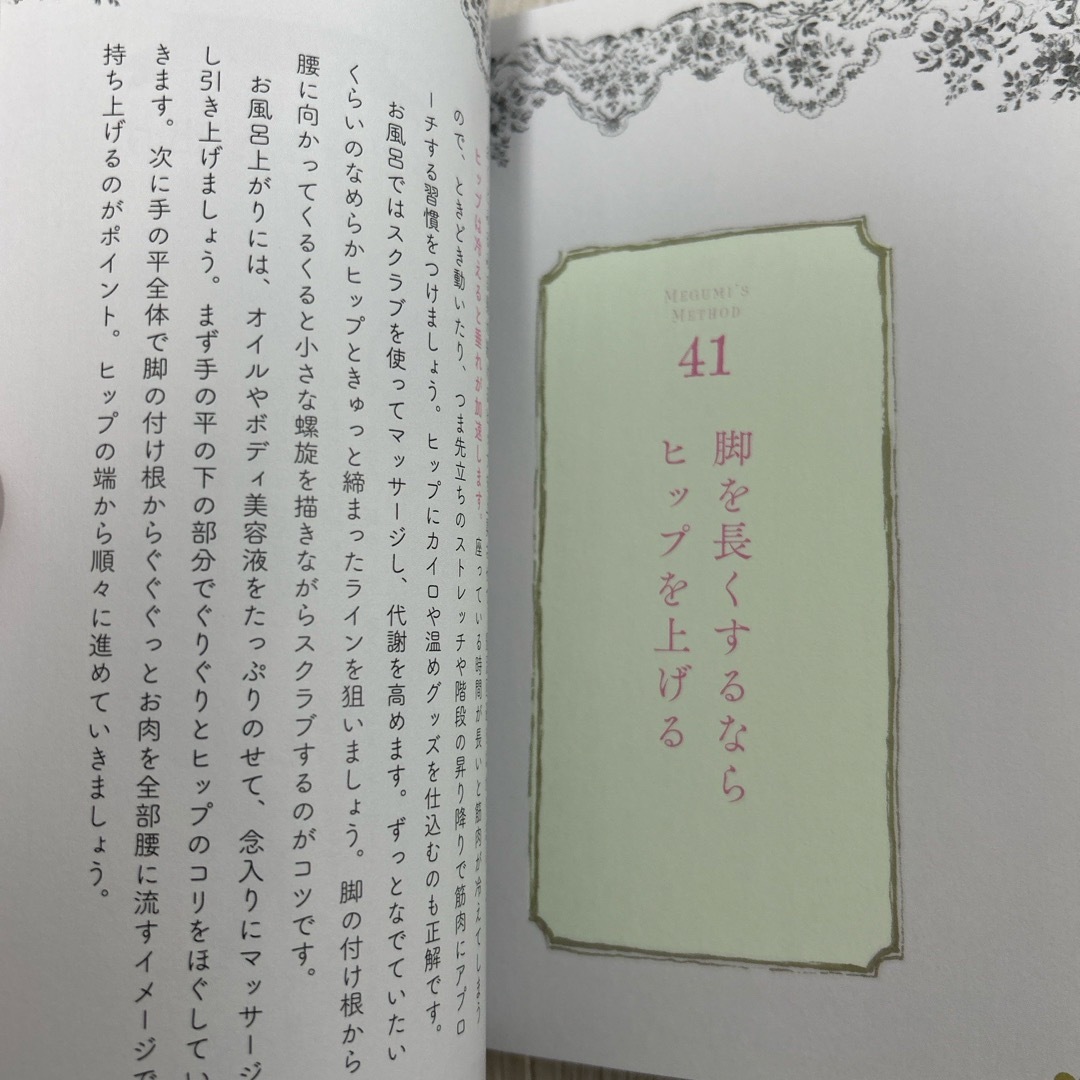 MEGUMI'S
METHOD
41
脚を長くするなら
ヒップを上げる
ヒップは冷えると垂れが加速します。座っている時間が長いと筋肉が冷えてしまう
ので、ときどき動いたり、つま先立ちのストレッチや階段の昇り降りで筋肉にアプロ
ーチする習慣をつけましょう。ヒップにカイロや温めグッズを仕込むのも正解です。
お風呂ではスクラブを使ってマッサージし、代謝を高めます。ずっとなでていたい
くらいのなめらかヒップときゅっと締まったラインを狙いましょう。脚の付け根から
腰に向かってくるくると小さな螺旋を描きながらスクラブするのがコツです。
お風呂上がりには、オイルやボディ美容液をたっぷりのせて、念入りにマッサージ
し引き上げましょう。まず手の平の下の部分でぐりぐりとヒップのコリをほぐしてい
きます。次に手の平全体で脚の付け根からぐぐぐっとお肉を全部腰に流すイメージで
持ち上げるのがポイント。ヒップの端から順々に進めていきましょう。